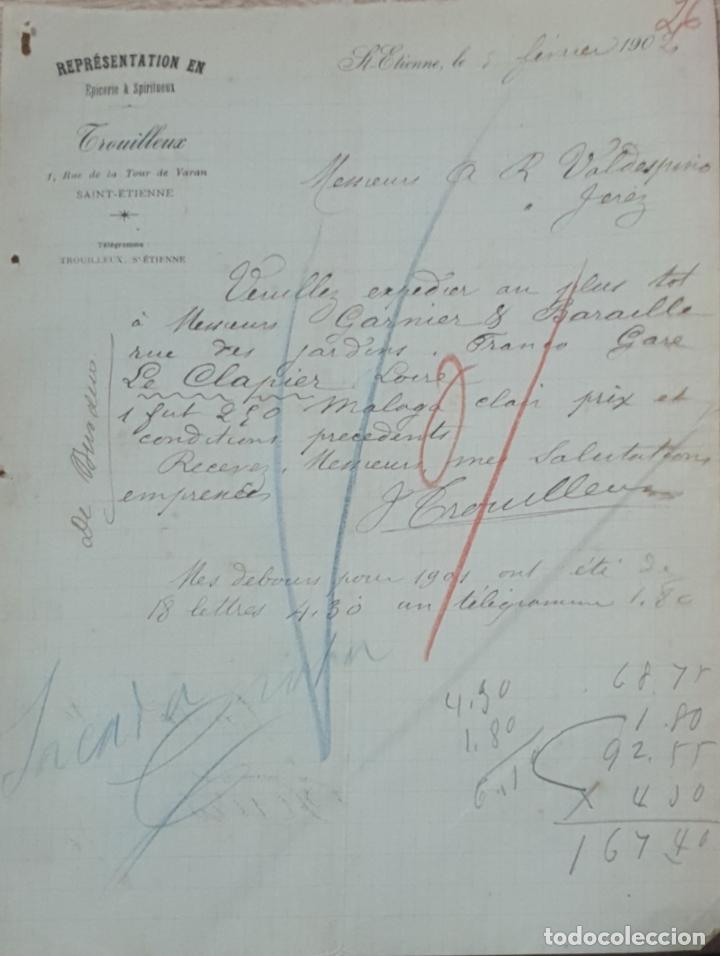 26
REPRÉSENTATION EN
Epicerie & Spiritueux
Trouilleux
1, Rue de la Tour de Varan
SAINT-ETIENNE
Télégramme :
TROUILLEUX, St ÉTIENNE
St Etienne, le 5 février 1902
Messieurs A R Valdespino
" Jerez
Veuillez expédier au plus tot
à Messieurs Garnier & Baraille
rue des jardins. Franco Gare
Le Clapier. Loire
1 fut 250 Malaga clair prix et
conditions precedents
Recevez, Messieurs, mes salutations
empressées
J Trouilleux
Mes debours pour 1901 ont été de
18 lettres 4,30 un télégramme 1,80
Sacada
4.30
1.80
68.75
1.80
92.55
4 30
167.40
todocoleccion
todocoleccion.net